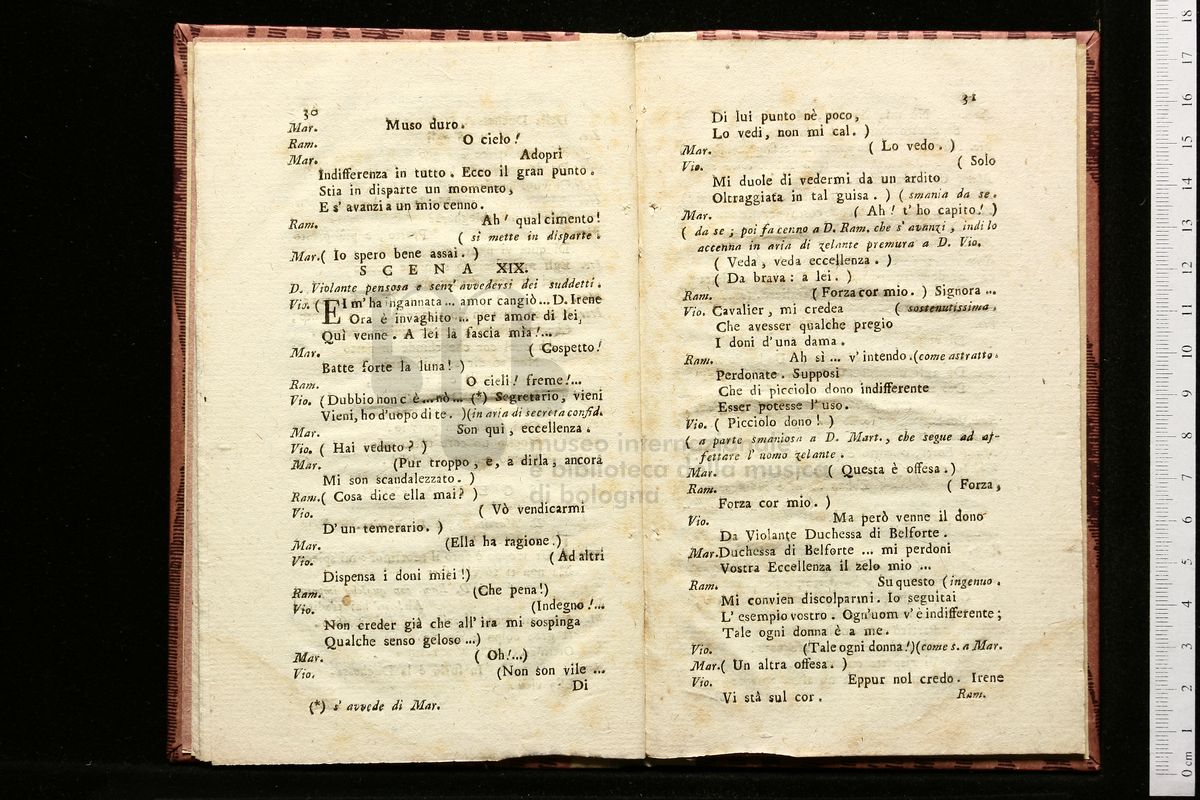 30
Mar. Muso duro.
Ram. O cielo!
Mar. Adopri
Indifferenza in tutto. Ecco il gran punto.
Stia in disparte un momento,
E s' avanzi a un mio cenno.
Ram. Ah! qual cimento!
( si mette in disparte.
Mar. ( Io spero bene assai. )
SCENA XIX.
D. Violante pensosa e senz' avvedersi dei suddetti.
Vio. ( EI m' ha ingannata ... amor cangiò ... D. Irene
Ora è invaghito ... per amor di lei,
Quì venne. A lei la fascia mia!...
Mar. ( Cospetto!
Batte forte la luna! )
Ram. O cieli! freme!...
Vio. ( Dubbio non c' è ... nò ... (*) Segretario, vieni
Vieni, ho d'uopo di te. ) (in aria di secreta confid.
Mar. Son qui, eccellenza.
Vio. ( Hai veduto? )
Mar. (Pur troppo, e, a dirla, ancora
Mi son scandalezzato. )
Ram. ( Cosa dice ella mai? )
Vio. ( Vò vendicarmi
D' un temerario. )
Mar. (Ella ha ragione.)
Vio. ( Ad altri
Dispensa i doni miei!)
Ram. (Che pena!)
Vio. (Indegno!...
Non creder già che all' ira mi sospinga
Qualche senso geloso ...)
Mar. ( Oh!...)
Vio. (Non son vile ...
Di
(*) s' avvede di Mar.
31
Di lui punto nè poco,
Lo vedi, non mi cal. )
Mar. ( Lo vedo. )
Vio. ( Solo
Mi duole di vedermi da un ardito
Oltraggiata in tal guisa. ) ( smania da se.
Mar. ( Ah! t' ho capito! )
( da se; poi fa cenno a D. Ram. che s' avanzi, indi lo
accenna in aria di zelante premura a D. Vio.
( Veda, veda eccellenza. )
( Da brava: a lei. )
Ram. ( Forza cor mio. ) Signora ...
Vio. Cavalier, mi credea ( sostenutissima.
Che avesser qualche pregio
I doni d' una dama.
Ram. Ah sì ... v' intendo. (come astratto.
Perdonate. Supposi
Che di picciolo dono indifferente
Esser potesse l' uso.
Vio. ( Picciolo dono! )
( a parte smaniosa a D. Mart., che segue ad af-
fettare l' uomo zelante.
Mar. ( Questa è offesa.)
Ram. ( Forza,
Forza cor mio. )
Vio. Ma però venne il dono
Da Violante Duchessa di Belforte.
Mar. Duchessa di Belforte ... mi perdoni
Vostra Eccellenza il zelo mio ...
Ram. Su questo (ingenuo.
Mi convien discolparmi. Io seguitai
L' esempio vostro. Ogn'uom v' è indifferente;
Tale ogni donna è a me.
Vio. (Tale ogni donna!) (come s. a Mar.
Mar. ( Un altra offesa. )
Vio. Eppur nol credo. Irene
Vi stà sul cor.
Ram.
museo internazionale
e biblioteca della musica
di bologna
0 cm 1 2 3 4 5 6 7 8 9 10 11 12 13 14 15 16 17 18